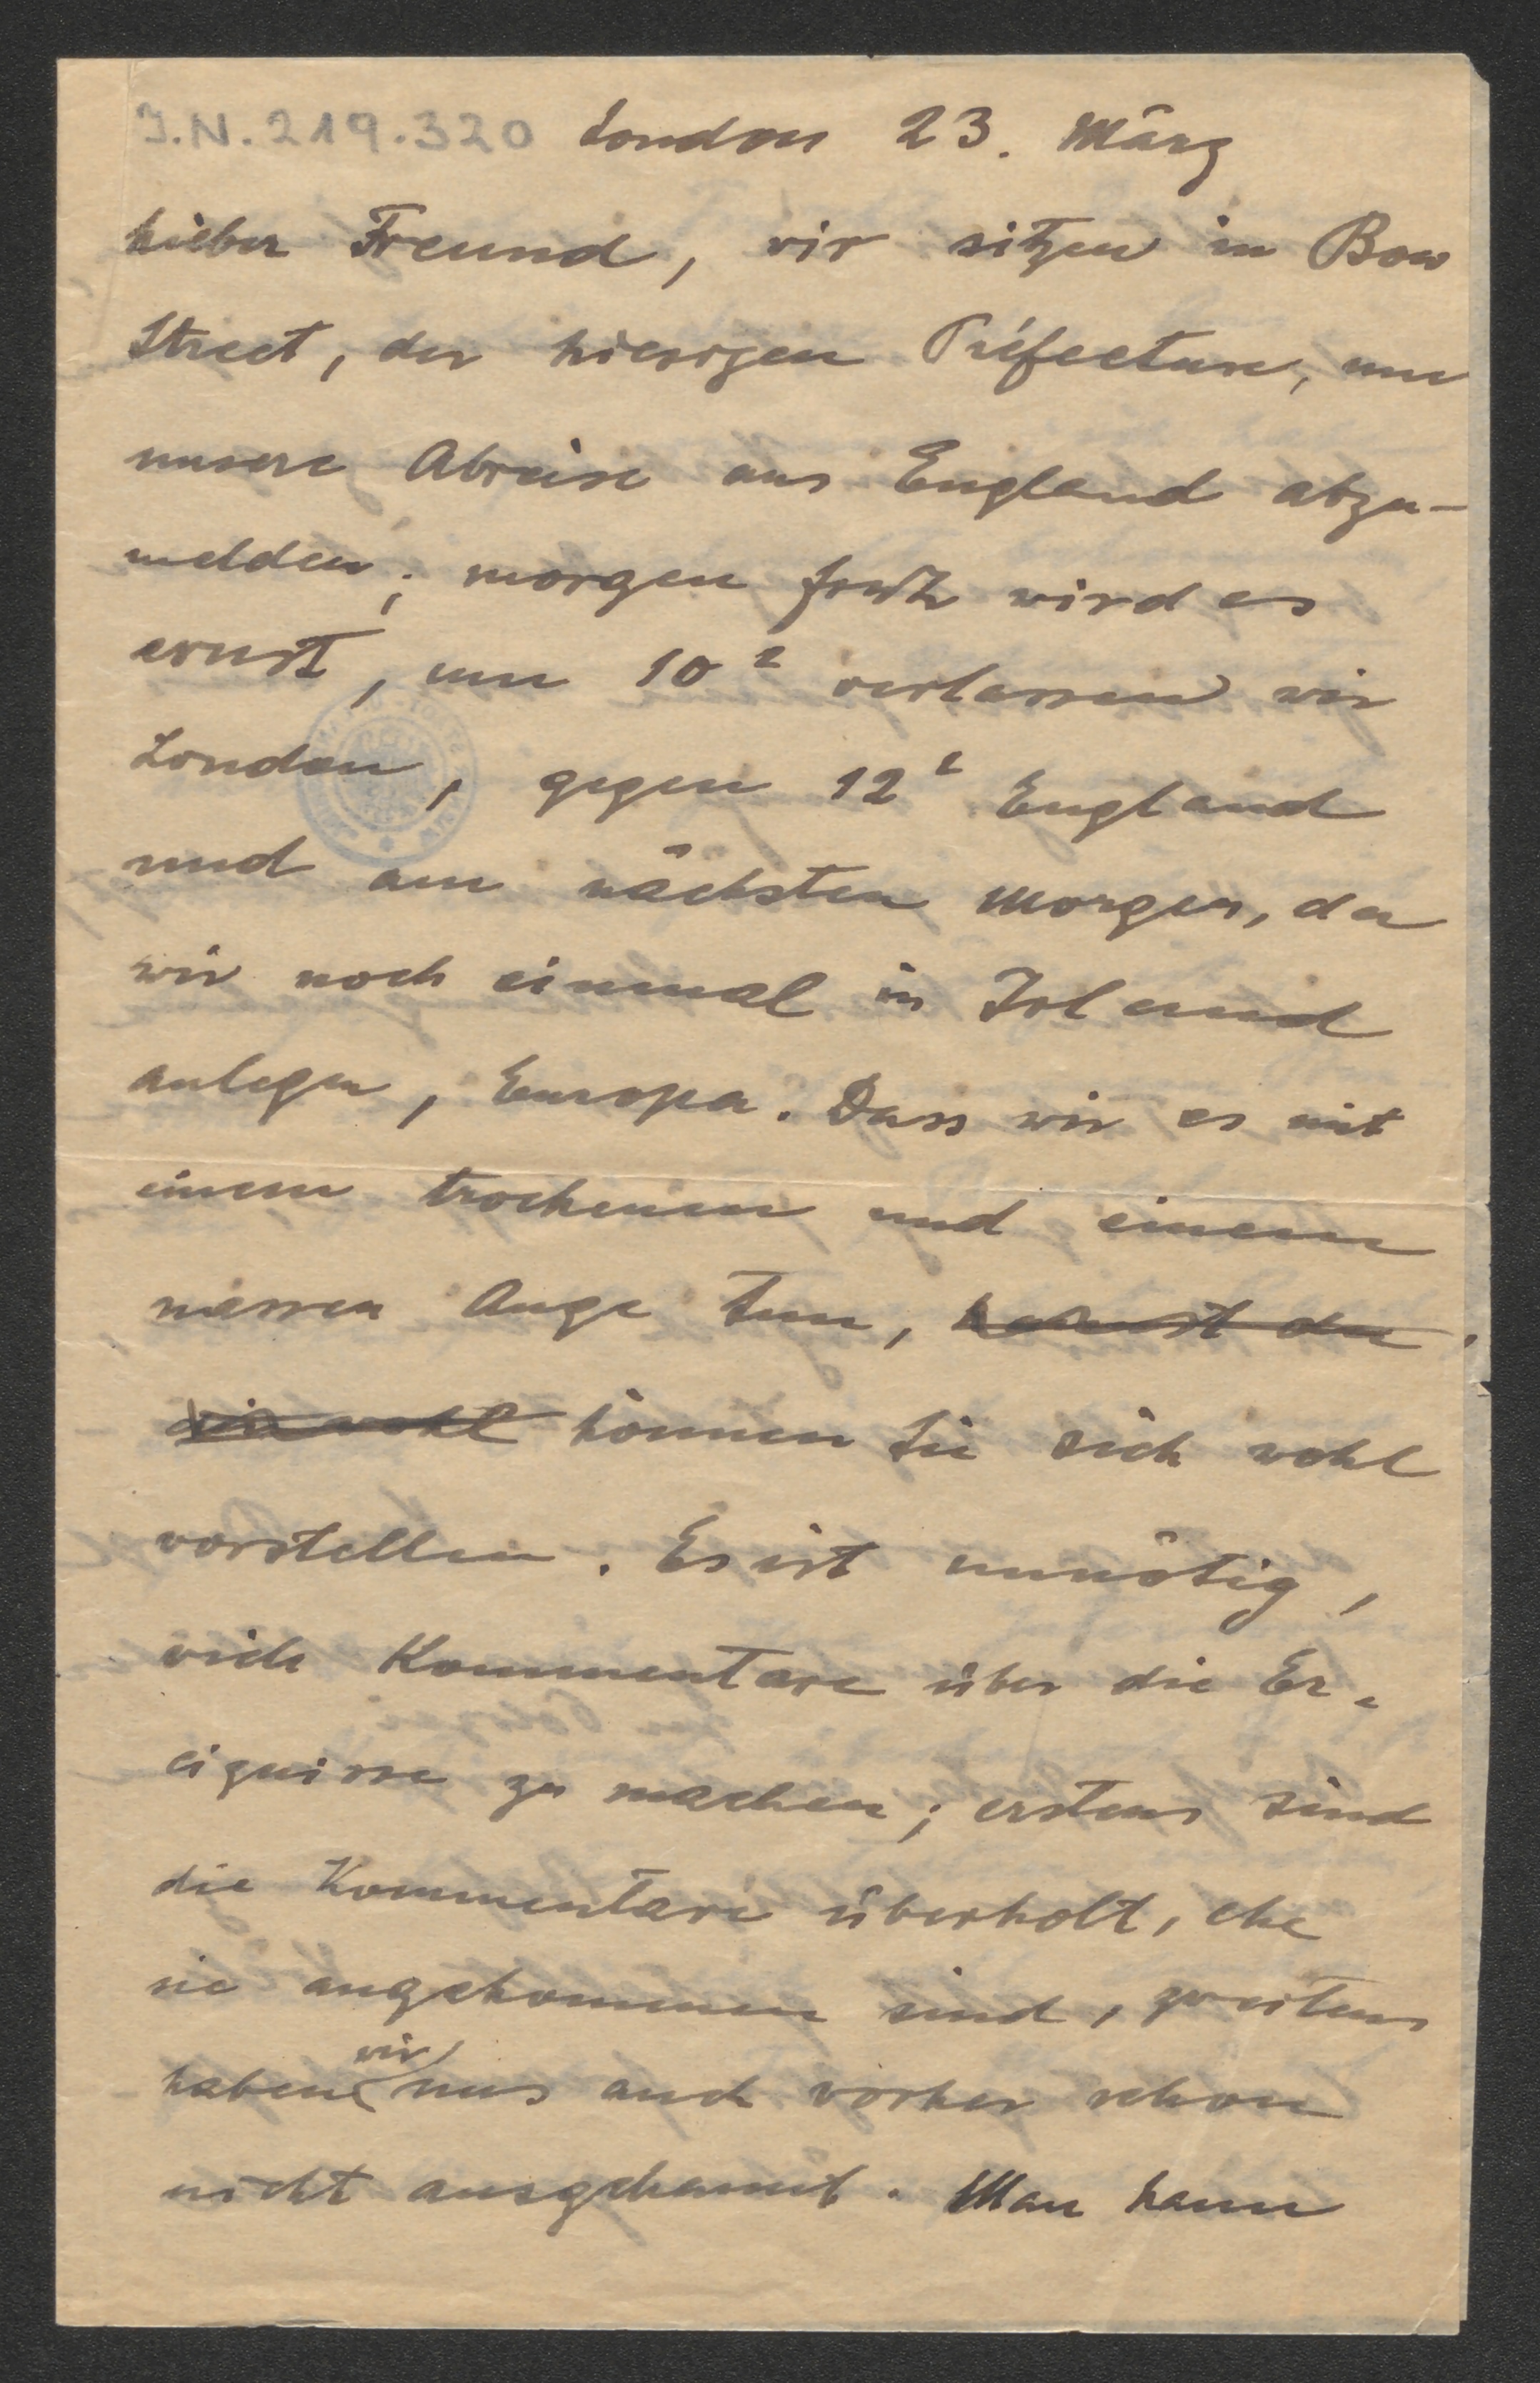 J.N. 219.320 London 23. März
Lieber Freund, wir sitzen in Bow
Street, der hiesigen Préfecture, um
unsere Abreise aus England abzu-
melden; morgen früh wird es
ernst, um 10² verlassen wir
London, gegen 12² England
und am nächsten Morgen, da
wir noch einmal in Irland
anlegen, Europa. Dass wir es mit
einem trockenen und einem
nassen Auge tun, kannst du
dir wohl können Sie sich wohl
vorstellen. Es ist unnötig,
viele Kommentare über die Er-
eignisse zu machen; erstens sind
die Kommentare überholt, ehe
sie angekommen sind, zweitens
haben wir uns auch vorher schon
nicht ausgekannt. Man kann